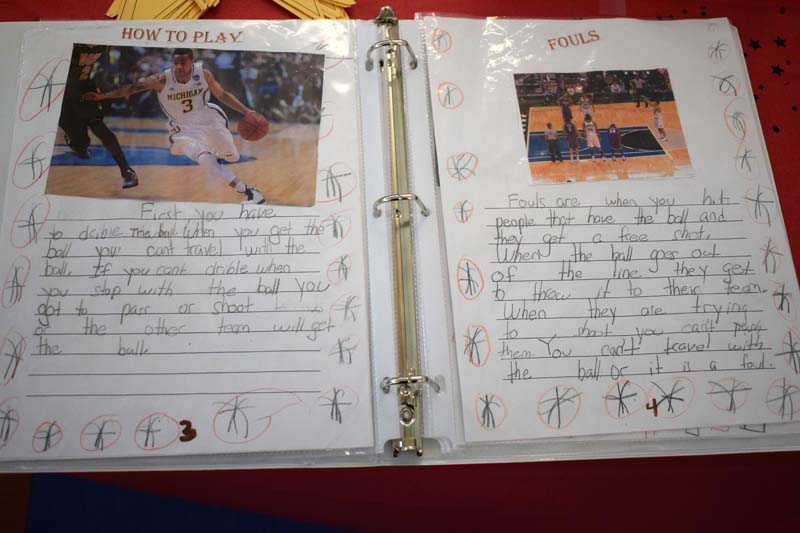 HOW TO PLAY
MICHIGAN
3
First you have
to drible The ball when you get the
ball you cant travel with the
ball. If you cant drible when
you stop with the ball you
got to pass or shoot
or the other team will get
the ball.
3
FOULS
Fouls are when you hit
people that have the ball and
they get a free shot.
When the ball goes out
of the line they get
to throw it to their team.
When they are trying
to shoot you can't push
them. You can't travel with
the ball or it is a foul.
4